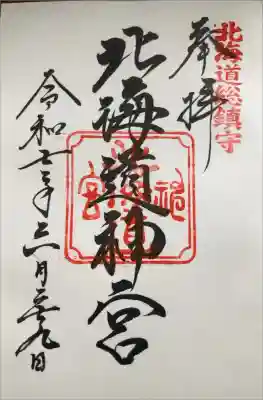 北海道総鎮守
奉拝
北海道神宮
令和七年六月 九日